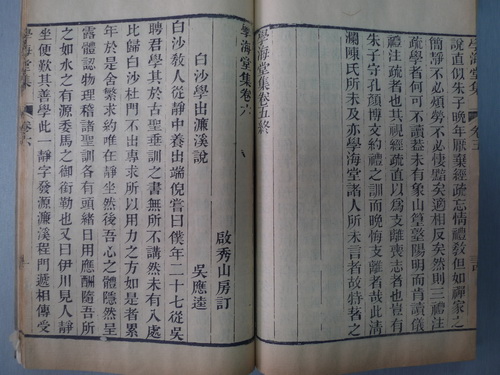 學海堂集 卷五
說直似朱子晚年厭棄經疏忘情禮教但如禪家之
簡靜不必煩勞不必悽黯矣適相反矣然則三禮注
疏學者何可不讀蓋未有象山篁墩陽明而肯讀儀
禮注疏者也其視經疏直以為支離喪志者也豈有
朱子守孔顏博文約禮之訓而晚悔支離者哉此清
瀾陳氏所未及亦學海堂諸人所未言者故特著之
學海堂集卷五終
學海堂集卷六
啟秀山房訂
白沙學出濂溪說
吳應逵
白沙教人從靜中養出端倪嘗曰僕年二十七從吳
聘君學其於古聖垂訓之書無所不講然未有入處
比歸白沙杜門不出專求所以用力之方如是者累
年於是舍繁求約唯在靜坐然後吾心之體隱然呈
露體認物理稽諸聖訓各有頭緒日用應酬隨吾所
之如水之有源委馬之御銜勒也又曰伊川見人靜
坐便歎其善學此一靜字發源濂溪程門遞相傳受
學海堂集 卷六